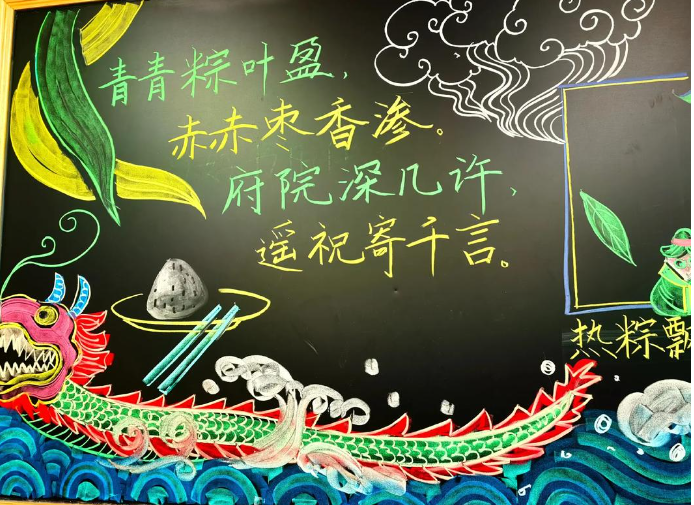 青青粽叶盈，
赤赤枣香渗。
府院深几许，
遥祝寄千言。
热粽飘